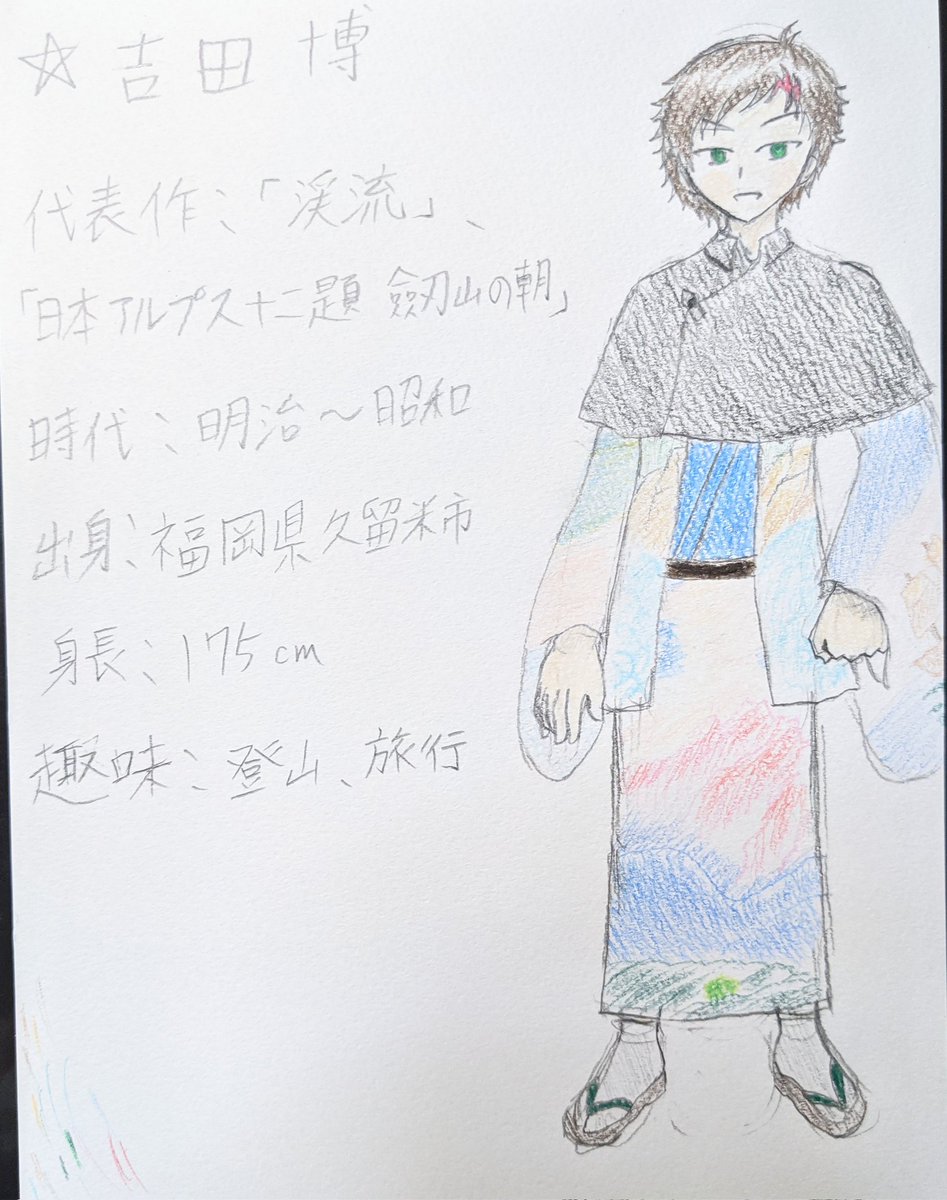 ☆吉田 博
代表作:「渓流」、
「日本アルプス十二題 劔山の朝」
時代:明治~昭和
出身:福岡県久留米市
身長:175cm
趣味:登山、旅行